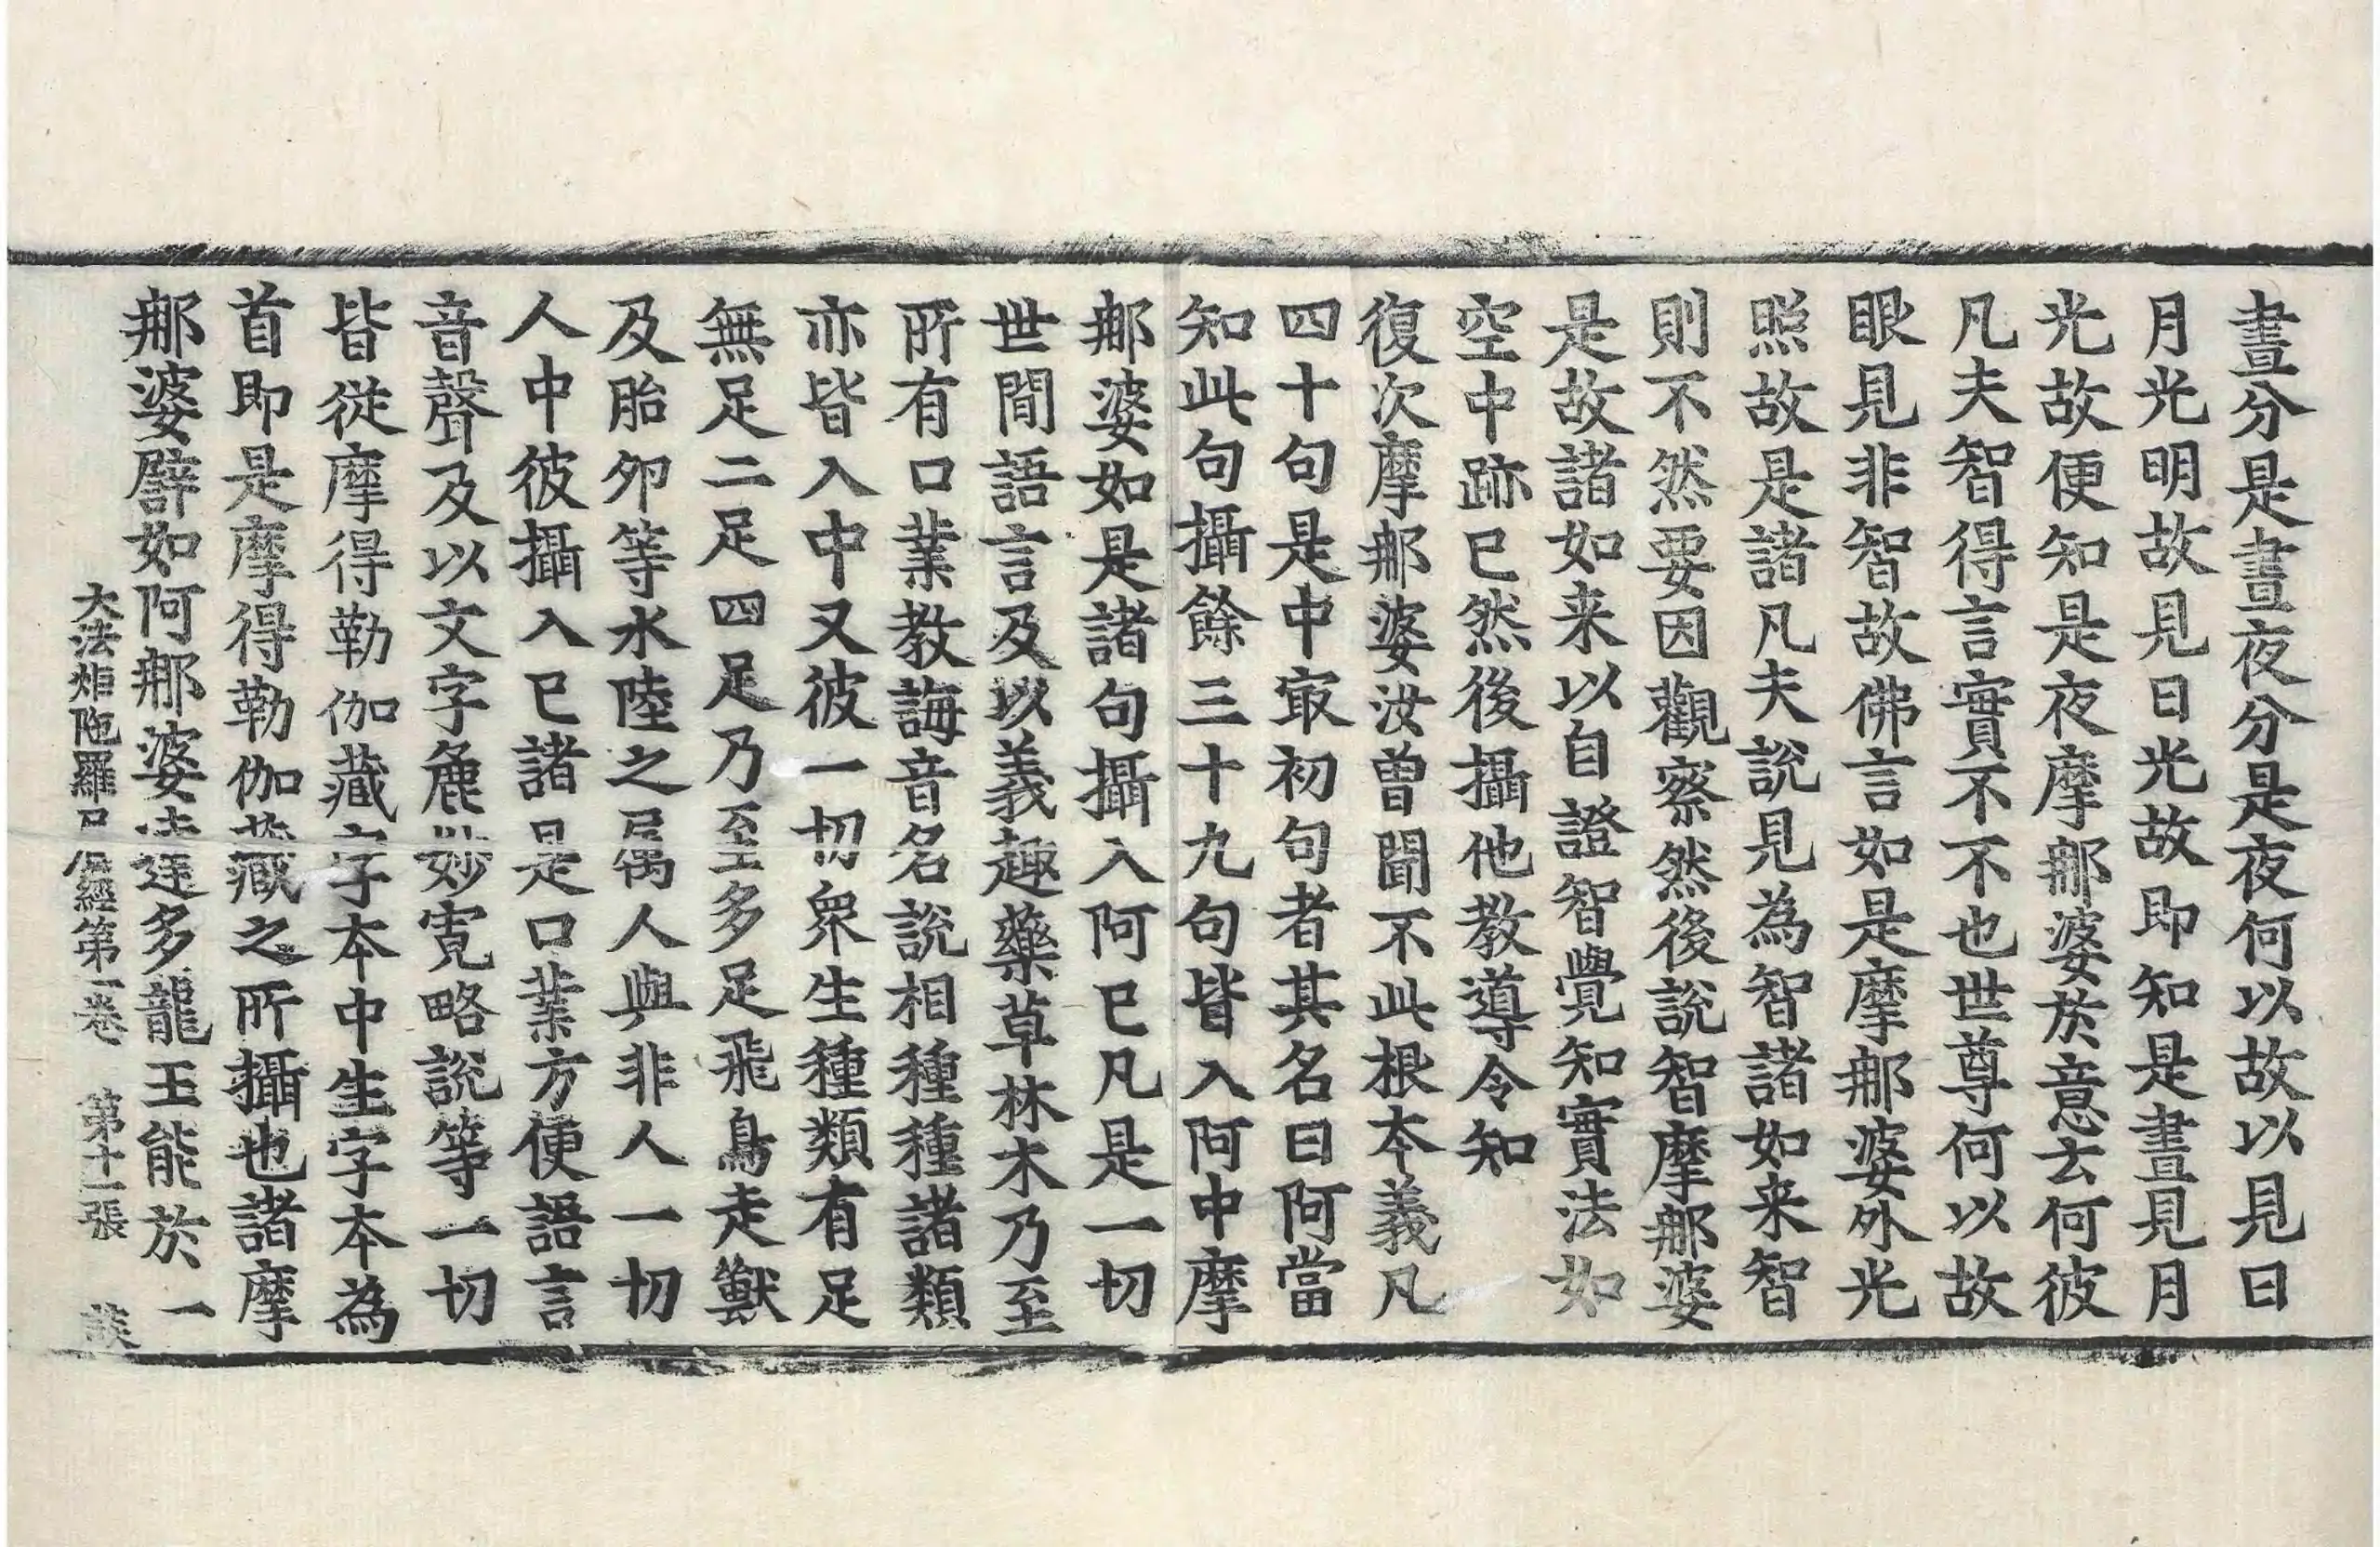 晝分是晝夜分是夜何以故以見日
月光明故見日光故即知是晝見月
光故便知是夜摩那婆於意云何彼
凡夫智得言實不不也世尊何以故
眼見非智故佛言如是摩那婆外光
照故是諸凡夫說見為智諸如来智
則不然要因觀察然後說智摩那婆
是故諸如来以自證智覺知實法如
空中跡已然後攝他教導令知
復次摩那婆汝曾聞不此根本義凡
四十句是中㝡初句者其名曰阿當
知此句攝餘三十九句皆入阿中摩
那婆如是諸句攝入阿已凡是一切
世間語言及以義趣藥草林木乃至
所有口業教誨音名說相種種諸類
亦皆入中又彼一切衆生種類有足
無足二足四足乃至多足飛鳥走獸
及胎卵等水陸之属人與非人一切
人中彼攝入已諸是口業方便語言
音聲及以文字麁妙寛略說等一切
皆從摩得勒伽藏字本中生字本為
首即是摩得勒伽藏之所攝也諸摩
那婆譬如阿那婆達多龍王能於一
大法炬陁羅尼經第一卷 第十二張 談